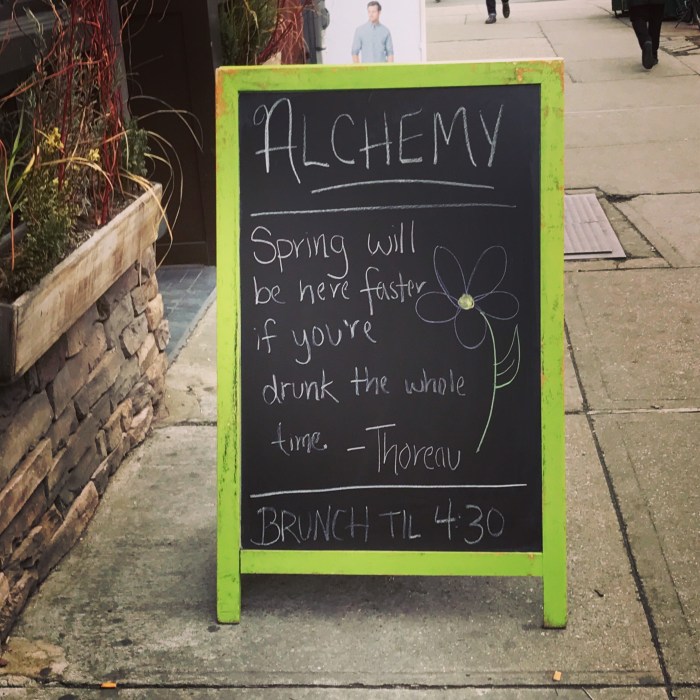 ALCHEMY
Spring will
be here faster
if you're
drunk the whole
time - Thoreau
BRUNCH TIL 4:30